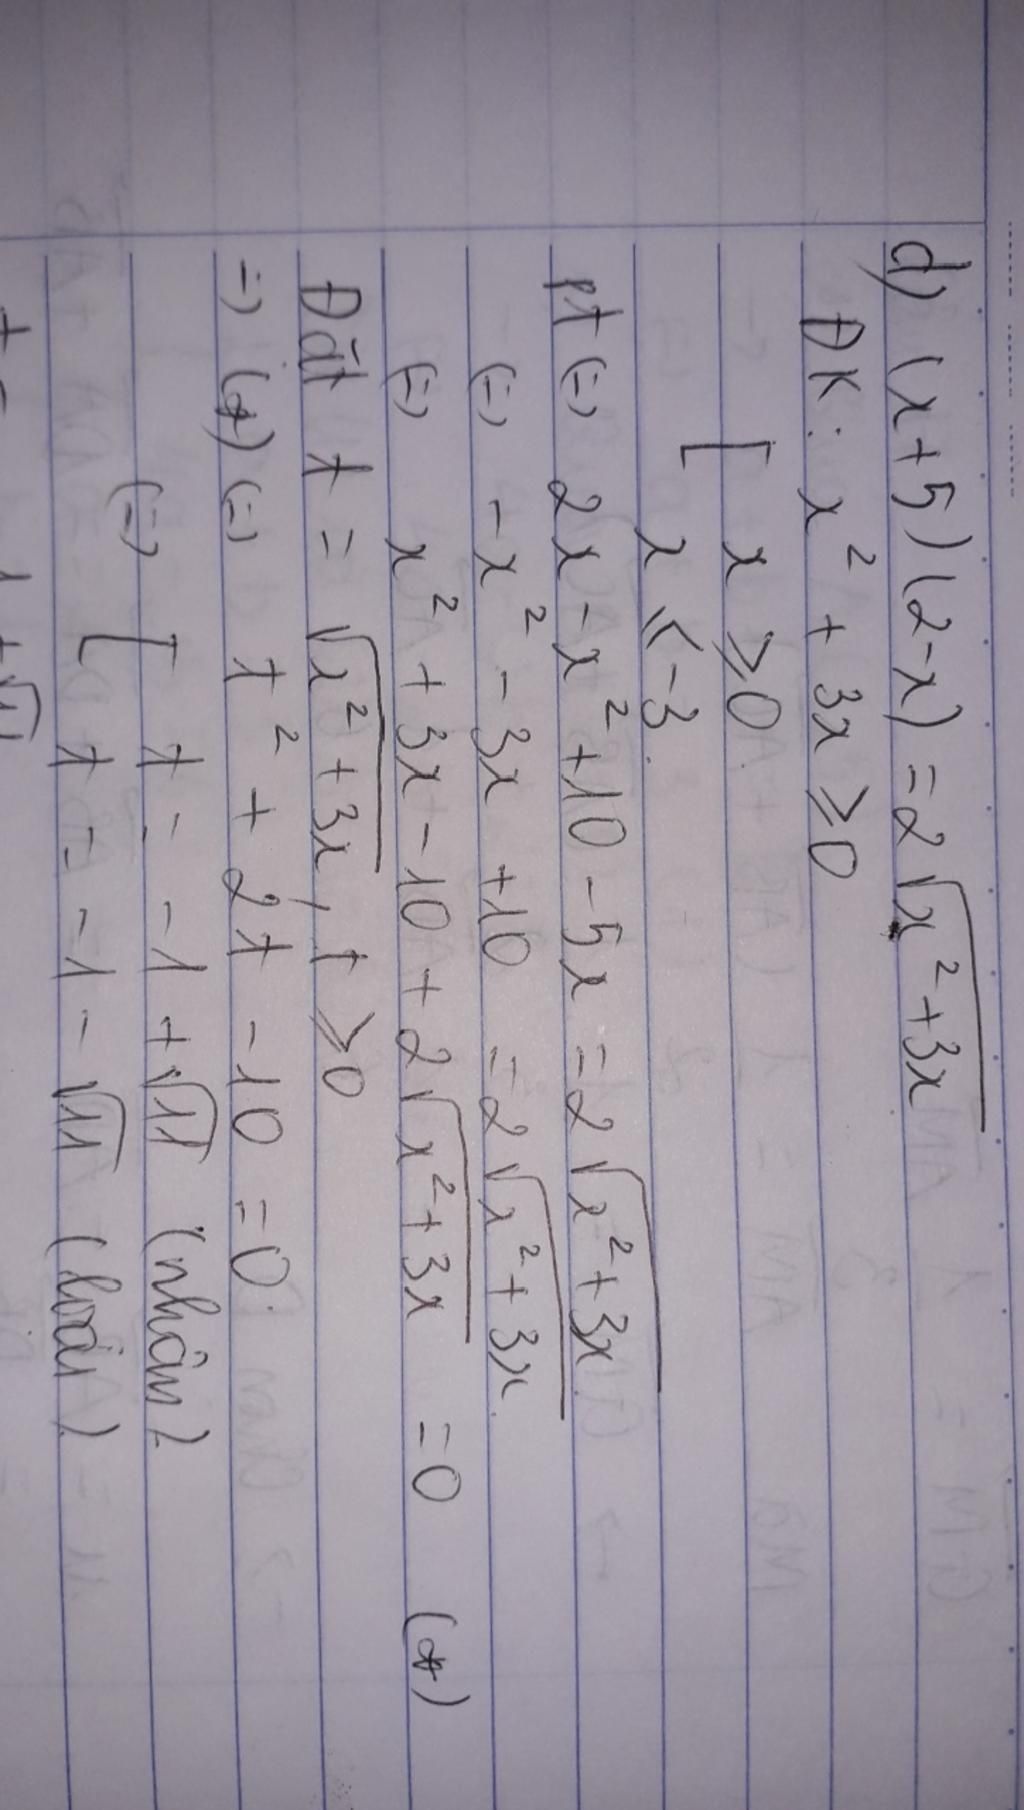 d) (x+5)(2-x) = 2√(x²+3x)
ĐK: x² + 3x ≥ 0
[ x ≥ 0
x ≤ -3.
pt (=) 2x - x² + 10 - 5x = 2√(x²+3x)
(=) -x² - 3x + 10 = 2√(x²+3x).
(=) x² + 3x - 10 + 2√(x²+3x) = 0 (*)
Đặt t = √(x²+3x), t ≥ 0
=) (*) (=) t² + 2t - 10 = 0
(=) [ t = -1 + √11 (nhận)
t = -1 - √11 (loại)